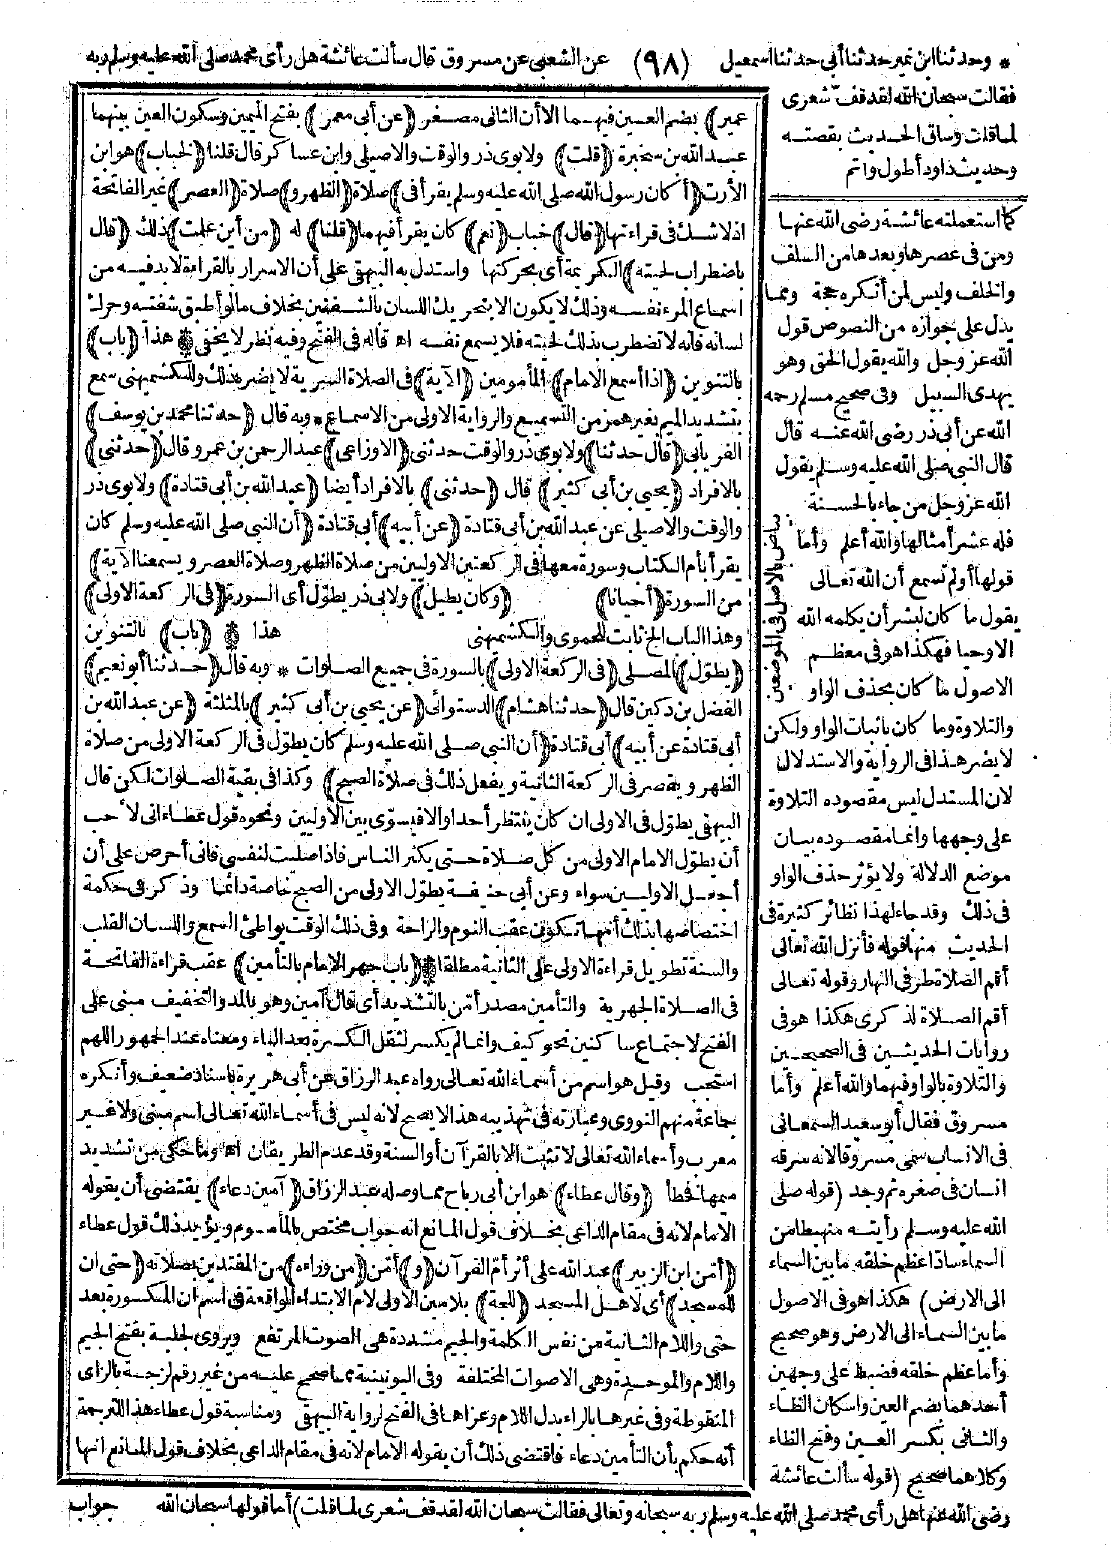 * وحدثنا ابن نمير حدثنا أبي حدثنا اسمعيل (٩٨) عن الشعبي عن مسروق قال سألت عائشة هل رأى محمد صلى الله عليه وسلم ربه
فقالت سبحان الله لقد قف شعرى
لما قلت وساق الحديث بقصته
وحديث داود أطول وأتم
كما استعملته عائشة رضى الله عنها
ومن فى عصرها وبعدها من السلف
والخلف وليس لمن أنكره حجة ومما
يدل على جوازه من النصوص قول
الله عز وجل والله يقول الحق وهو
يهدى السبيل وفى صحيح مسلم رحمه
الله عن أبى ذر رضى الله عنه قال
قال النبى صلى الله عليه وسلم يقول
الله عز وجل من جاء بالحسنة
فله عشر أمثالها والله أعلم وأما
قولها أولم تسمع أن الله تعالى
يقول ما كان لبشر أن يكلمه الله
الا وحيا فهكذا هو فى معظم
الاصول ما كان بحذف الواو
والتلاوة وما كان باثبات الواو ولكن
لا يضر هذا فى الرواية والاستدلال
لان المستدل ليس مقصوده التلاوة
على وجهها وانما مقصوده بيان
موضع الدلالة ولا يؤثر حذف الواو
فى ذلك وقد جاء لهذا نظائر كثيرة فى
الحديث منها قوله فأنزل الله تعالى
أقم الصلاة طرفى النهار وقوله تعالى
أقم الصلاة لذكرى هكذا هو فى
روايات الحديثين فى الصحيحين
والتلاوة بالواو فيهما والله أعلم وأما
مسروق فقال أبو سعيد السمعانى
فى الانساب سمى مسروقا لانه سرقه
انسان فى صغره ثم وجد (قوله صلى
الله عليه وسلم رأيته منهبطا من
السماء سادّا عظم خلقه ما بين السماء
الى الارض) هكذا هو فى الاصول
ما بين السماء الى الارض وهو صحيح
وأما عظم خلقه فضبط على وجهين
أحدهما بضم العين واسكان الظاء
والثانى بكسر العين وفتح الظاء
وكلاهما صحيح (قوله سألت عائشة
رضى الله عنها هل رأى محمد صلى الله عليه وسلم ربه سبحانه وتعالى فقالت سبحان الله لقد قف شعرى لما قلت) أما قولها سبحان الله جواب
بياض بالاصل فى الموضعين
عمير) بضم العين فيهما الا أن الثانى مصغر (عن أبى معمر) بفتح الميمين وسكون العين بينهما
عبد الله بن سخبرة (قلت) ولابوى ذر والوقت والاصيلى وابن عساكر قال قلنا (لخباب) هو ابن
الأرت (أ كان رسول الله صلى الله عليه وسلم يقرأ فى) صلاة (الظهر و) صلاة (العصر) غير الفاتحة
اذ لا شك فى قراءتها (قال) خباب (نعم) كان يقرأ فيهما (قلنا) له (من أين علمت) ذلك (قال
باضطراب لحيته) الكريمة أى بحركتها واستدل به البيهقى على أن الاسرار بالقراءة لا بد فيه من
اسماع المرء نفسه وذلك لا يكون الا بتحريك اللسان بالشفتين بخلاف ما لو أطبق شفتيه وحرك
لسانه فانه لا تضطرب بذلك لحيته فلا يسمع نفسه اه قاله فى الفتح وفيه نظر لا يخفى * هذا (باب)
بالتنوين (اذا أسمع الامام) المأمومين (الآية) فى الصلاة السرية لا يضر ذلك وللكشميهنى سمع
بتشديد الميم بغير همز من التسميع والرواية الاولى من الاسماع * وبه قال (حدثنا محمد بن يوسف)
الفريابى (قال حدثنا) ولابوى ذر والوقت حدثنى (الاوزاعى) عبد الرحمن بن عمرو قال (حدثنى)
بالافراد (يحيى بن أبى كثير) قال (حدثنى) بالافراد أيضا (عبد الله بن أبى قتادة) ولابوى ذر
والوقت والاصيلى عن عبد الله بن أبى قتادة (عن أبيه) أبى قتادة (أن النبى صلى الله عليه وسلم كان
يقرأ بأم الكتاب وسورة معها فى الركعتين الاوليين من صلاة الظهر وصلاة العصر ويسمعنا الآية)
من السورة (أحيانا) (وكان يطيل) ولابى ذر يطوّل أى السورة (فى الركعة الاولى)
وهذا الباب الخ ثابت للحموى والكشميهنى هذا * (باب) بالتنوين
(يطوّل) المصلى (فى الركعة الاولى) بالسورة فى جميع الصلوات * وبه قال (حدثنا أبو نعيم)
الفضل بن دكين قال (حدثنا هشام) الدستوائى (عن يحيى بن أبى كثير) بالمثلثة (عن عبد الله بن
أبى قتادة عن أبيه) أبى قتادة (أن النبى صلى الله عليه وسلم كان يطوّل فى الركعة الاولى من صلاة
الظهر ويقصر فى الركعة الثانية ويفعل ذلك فى صلاة الصبح) وكذا فى بقية الصلوات لكن قال
البيهقى يطوّل فى الاولى ان كان ينتظر أحدا والا فيسوّى بين الاوليين ونحوه قول عطاء انى لاحب
أن يطوّل الامام الاولى من كل صلاة حتى يكثر الناس فاذا صليت لنفسى فانى أحرص على أن
أجعل الاوليين سواء وعن أبى حنيفة يطوّل الاولى من الصبح خاصة دائما وذكر فى حكمة
اختصاصها بذلك أنها تكون عقب النوم والراحة وفى ذلك الوقت يواطئ السمع واللسان القلب
والسنة تطويل قراءة الاولى على الثانية مطلقا * (باب جهر الامام بالتأمين) عقب قراءة الفاتحة
فى الصلاة الجهرية والتأمين مصدر أمّن بالتشديد أى قال آمين وهو بالمد والتخفيف مبنى على
الفتح لاجتماع ساكنين نحو كيف وانما لم يكسر لثقل الكسرة بعد الياء ومعناه عند الجمهور اللهم
استجب وقيل هو اسم من أسماء الله تعالى رواه عبد الرزاق عن أبى هريرة باسناد ضعيف وأنكره
جماعة منهم النووى وعبارته فى تهذيبه هذا لا يصح لانه ليس فى أسماء الله تعالى اسم مبنى ولا غير
معرب وأسماء الله تعالى لا تثبت الا بالقرآن أو السنة وقد عدم الطريقان اه وما حكى من تشديد
ميمها فخطأ (وقال عطاء) هو ابن أبى رباح مما وصله عبد الرزاق (آمين دعاء) يقتضى أن يقوله
الامام لانه فى مقام الداعى بخلاف قول المانع انه جواب مختص بالمأموم ويؤيد ذلك قول عطاء
(أمّن ابن الزبير) عبد الله على أثر أمّ القرآن (و) أمّن (من وراءه) من المقتدين بصلاته (حتى ان
للمسجد) أى لاهل المسجد (للجة) بلامين الاولى لام الابتداء الواقعة فى اسم ان المكسورة بعد
حتى واللام الثانية من نفس الكلمة والجيم مشددة هى الصوت المرتفع ويروى لجلبة بفتح الجيم
واللام والموحدة وهى الاصوات المختلفة وفى اليونينية مما صحح عليه من غير رقم لزجة بالزاى
المنقوطة وفى غيرها بالراء بدل اللام وعزاها فى الفتح لرواية البيهقى ومناسبة قول عطاء هذا للترجمة
أنه حكم بأن التأمين دعاء فاقتضى ذلك أن يقوله الامام لانه فى مقام الداعى بخلاف قول المانع انها